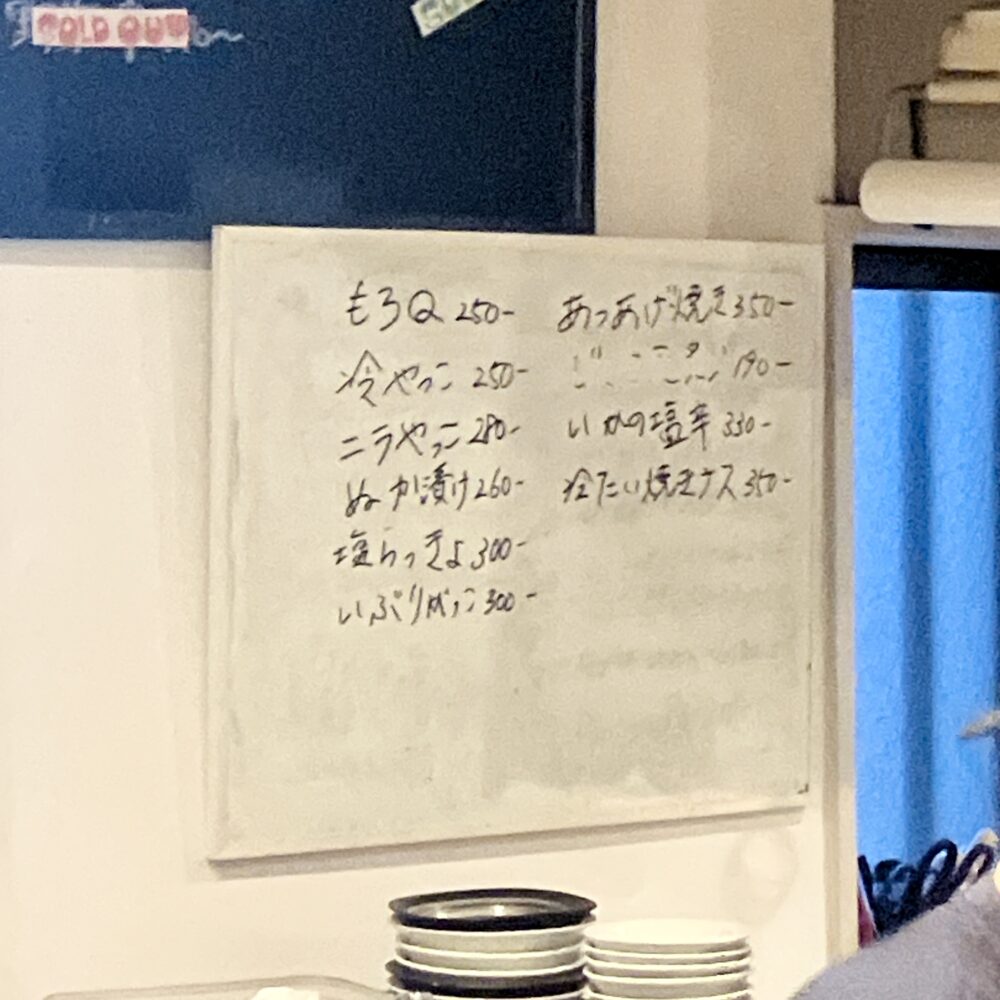 SOLD OUT
もろQ 250-
冷やっこ 250-
ニラやっこ 280-
ぬか漬け 260-
塩らっきょ 300-
いぶりがっこ 300-
あつあげ焼き 350-
190-
いかの塩辛 330-
冷たい焼きナス 350-